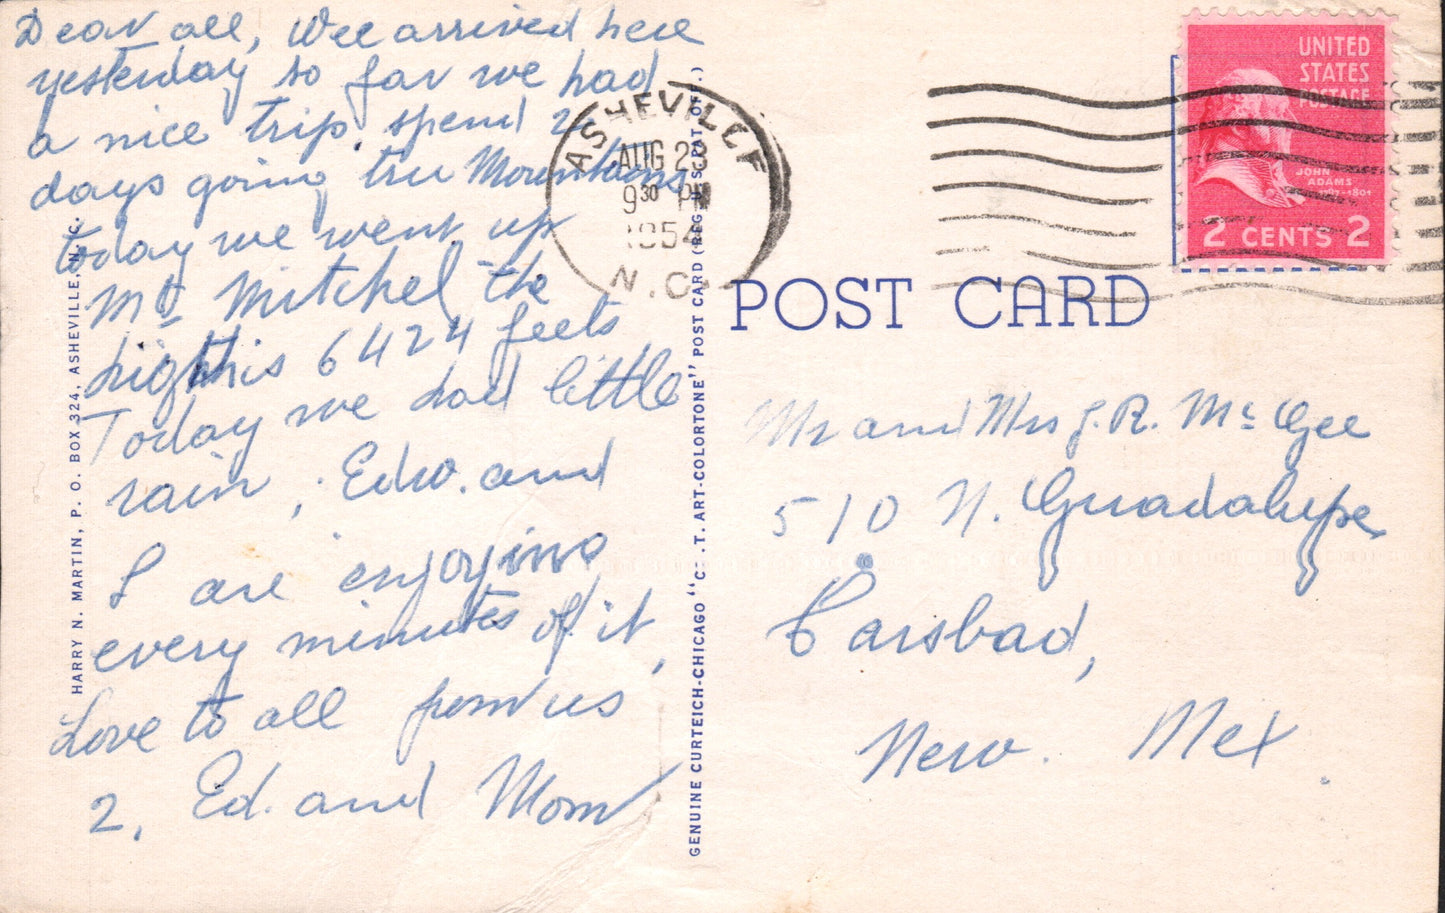 Dear all, Wee arrived here
yesterday so far we had
a nice trip. spend 2
days going tru Mountains
today we went up
Mt Mitchel the
highthis 6424 feets
Today we had little
rain, Edw. and
I are enjoying
every minutes of it,
Love to all from us
2, Ed. and Mom
HARRY N. MARTIN, P. O. BOX 324, ASHEVILLE, N. C.
GENUINE CURTEICH-CHICAGO "C. T. ART-COLORTONE" POST CARD (REG. U.S. PAT. OFF.)
ASHEVILLE
AUG 23
9 30 PM
1954
N.C.
UNITED
STATES
POSTAGE
JOHN
ADAMS
1797-1801
2 CENTS 2
POST CARD
Mr and Mrs J. R. McGee
510 N. Guadalupe
Carsbad,
New. Mex.